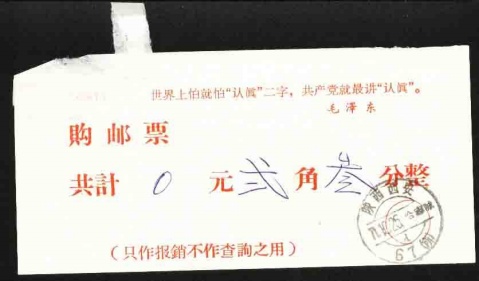 世界上怕就怕“认眞”二字，共产党就最讲“认眞”。
毛泽东
购邮票
共計 0 元 弍 角 叁 分整
(只作报銷不作查詢之用)
陝西西安